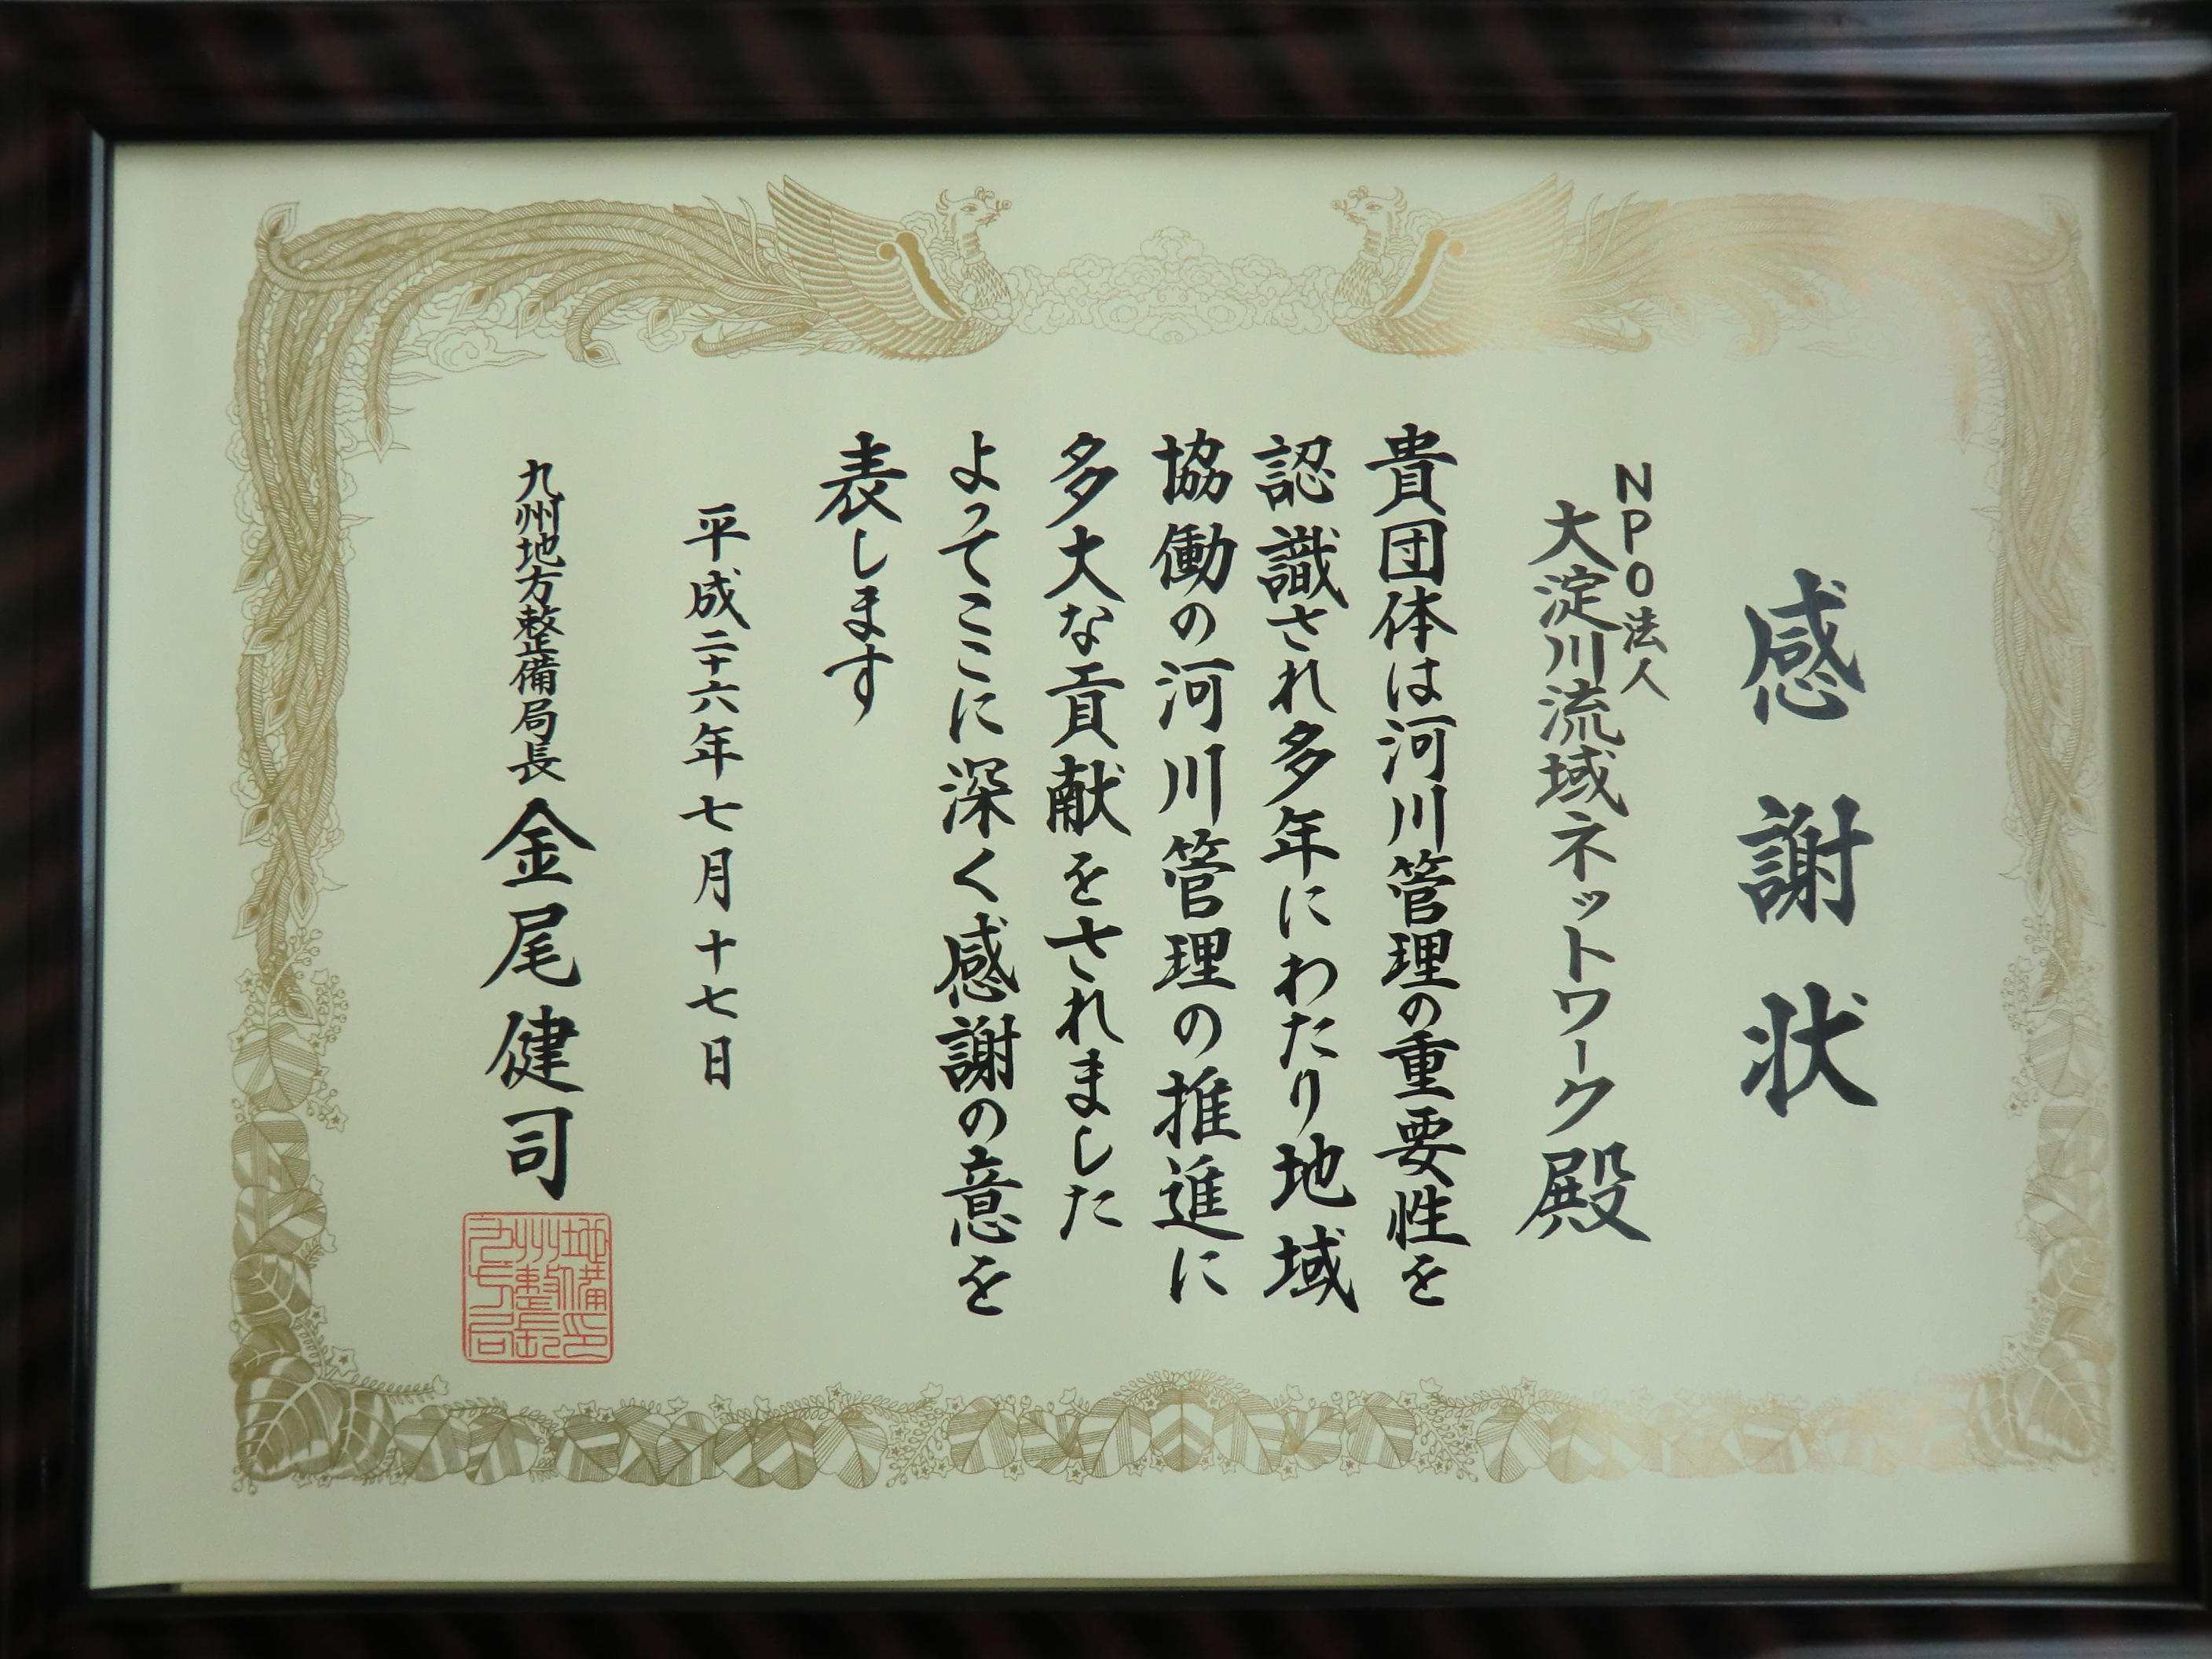 感謝状
NPO法人
大淀川流域ネットワーク殿
貴団体は河川管理の重要性を
認識され多年にわたり地域
協働の河川管理の推進に
多大な貢献をされました
よってここに深く感謝の意を
表します
平成二十六年七月十七日
九州地方整備局長 金尾健司